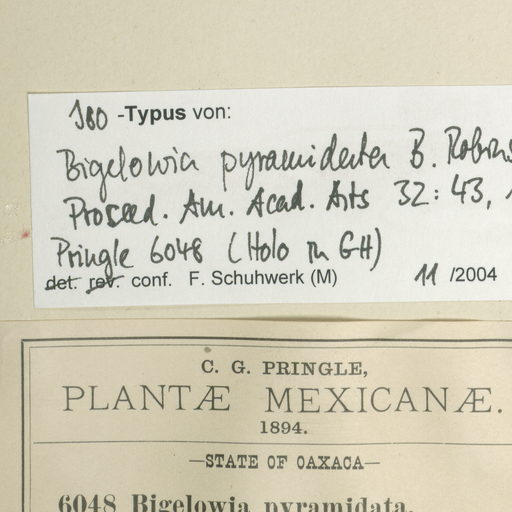 Iso -Typus von:
Bigelowia pyramidata B. Robins
Proceed. Am. Acad. Arts 32: 43,
Pringle 6048 (Holo in GH)
det. rev. conf. F. Schuhwerk (M) 11 /2004
C. G. PRINGLE,
PLANTÆ MEXICANÆ.
1894.
—STATE OF OAXACA—
6048 Bigelowia pyramidata,